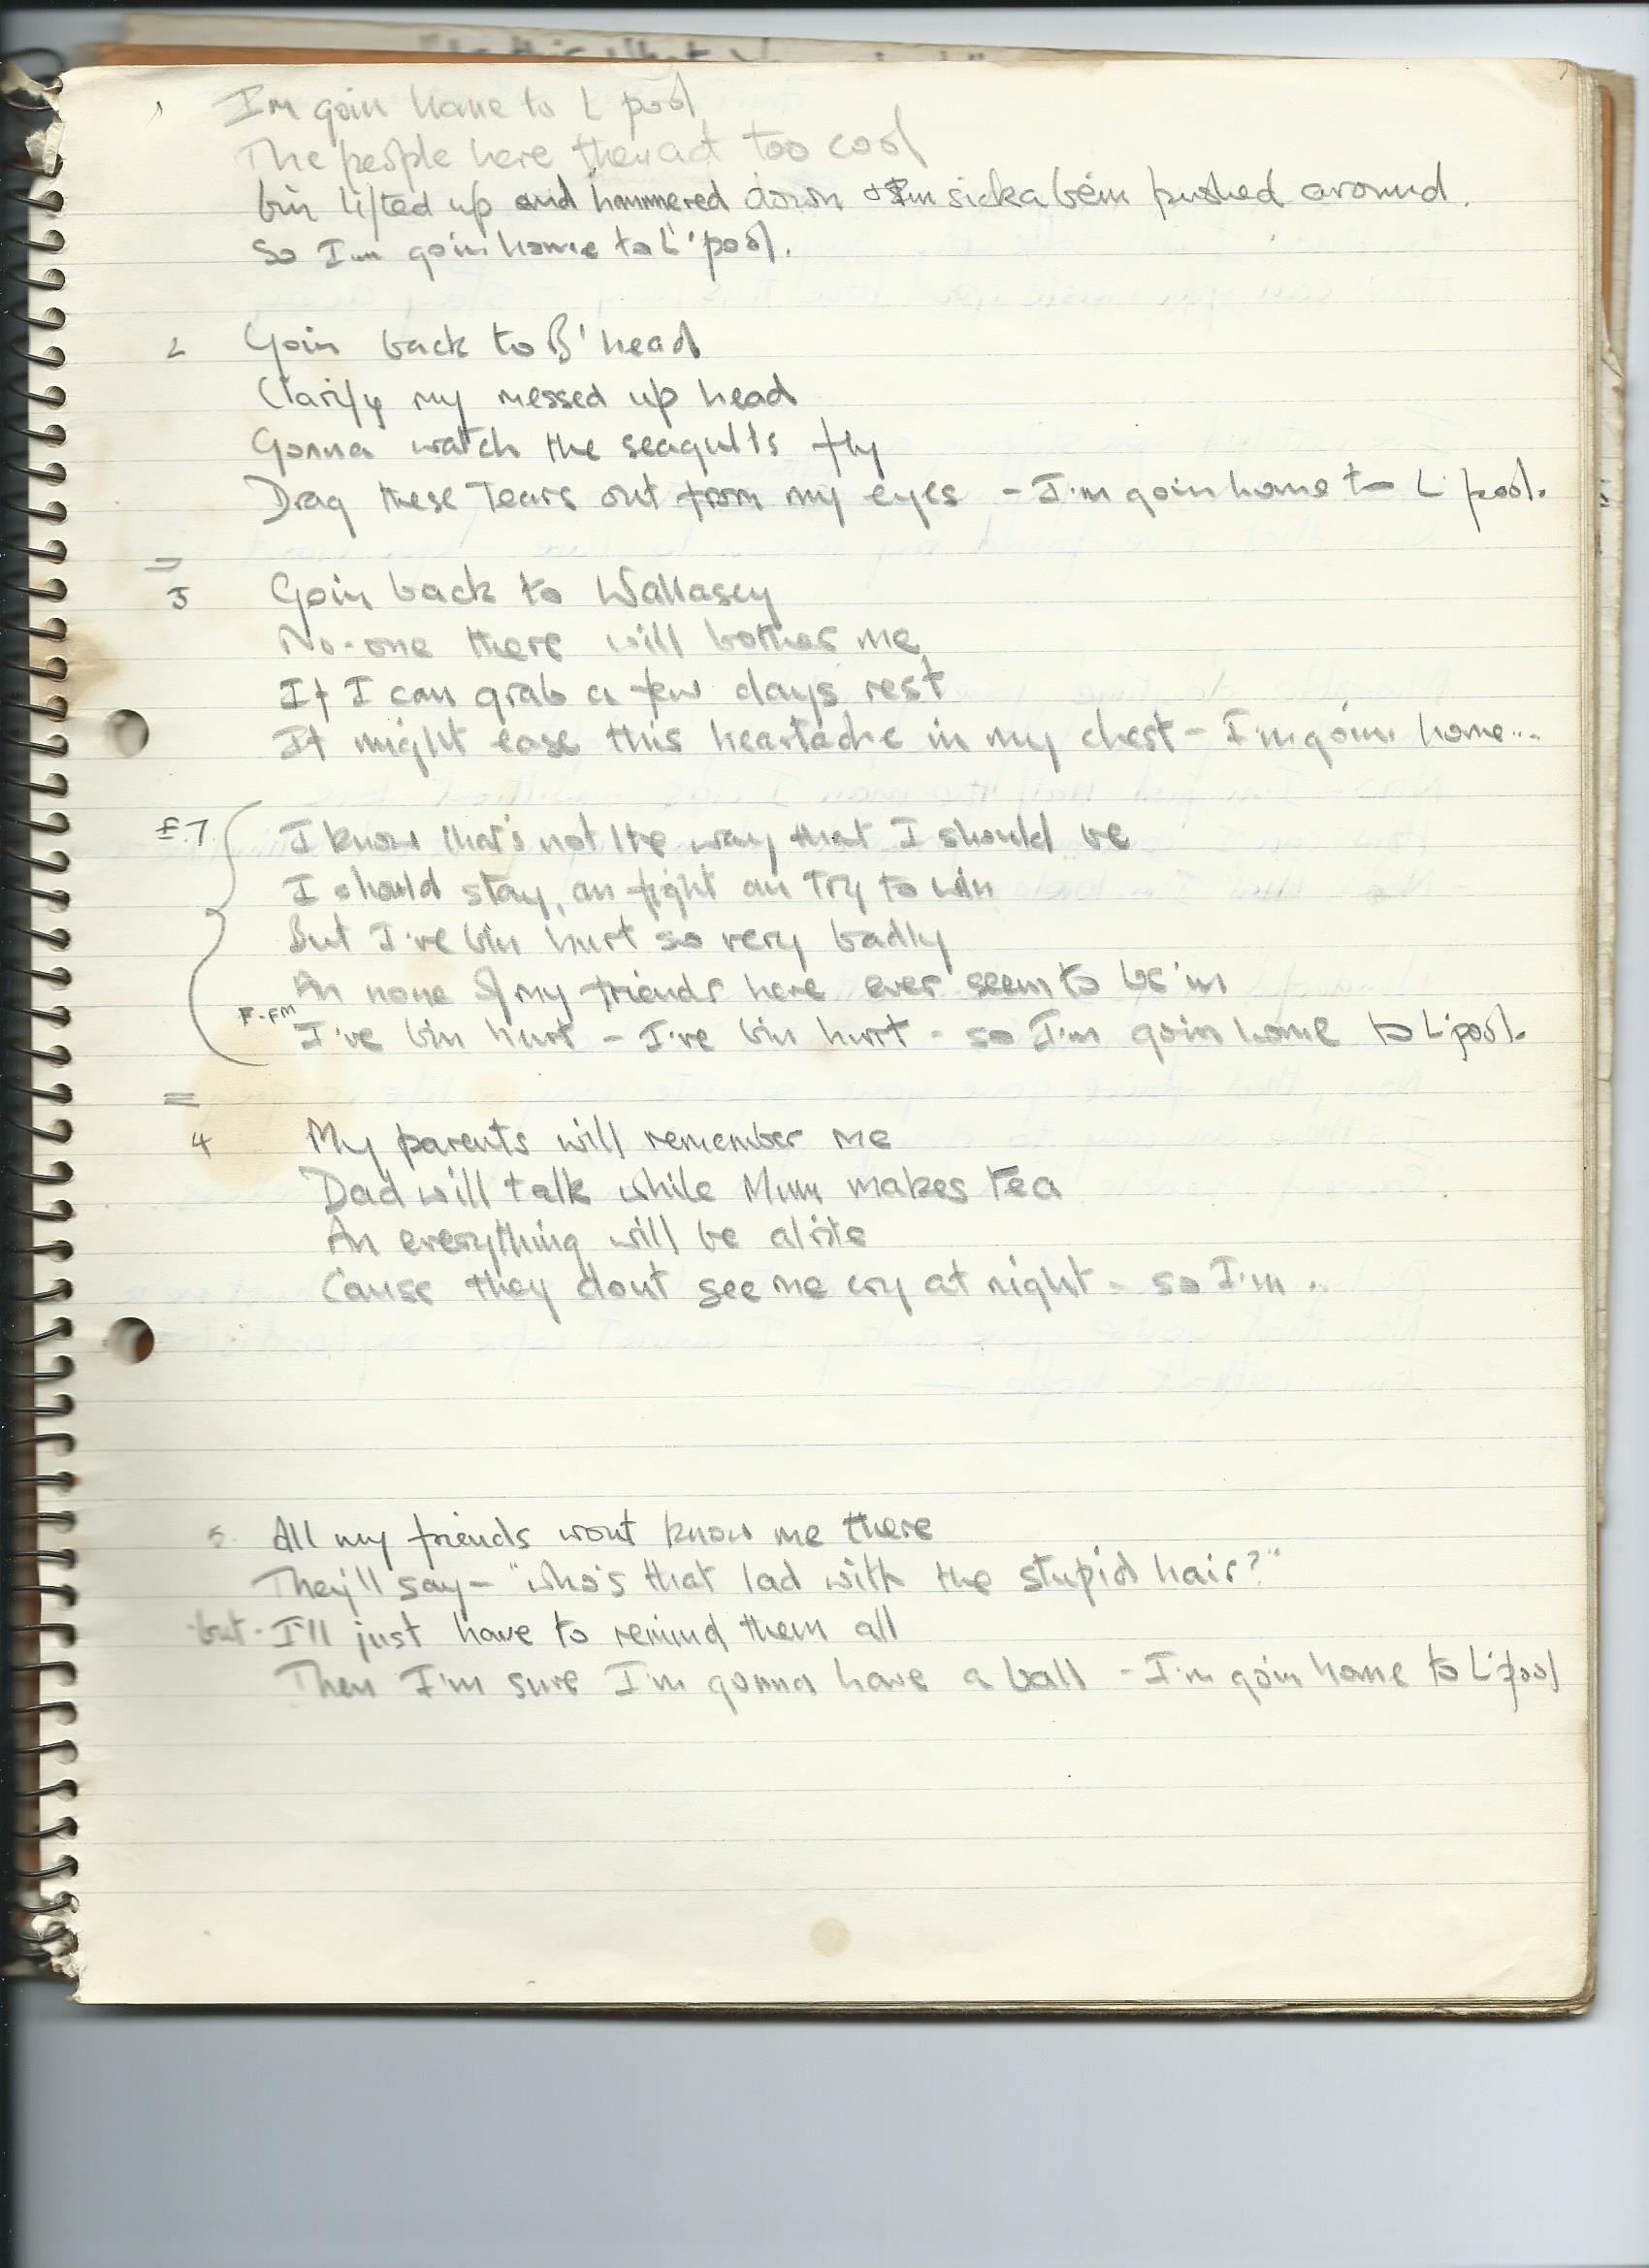 1 I'm goin home to L'pool
The people here they act too cool
bin lifted up and hammered down & I'm sick a bein pushed around.
So I'm goin home to L'pool.
2 Goin back to B'head
Clarify my messed up head
Gonna watch the seagulls fly
Drag these Tears out from my eyes - I'm goin home to L'pool.
3 Goin back to Wallasey
No-one there will bother me
If I can grab a few days rest
It might ease this heartache in my chest - I'm goin home...
E.7. I know that's not the way that I should be
I should stay, an fight an Try to win
But I've bin hurt so very badly
An none of my friends here ever seem to be in
F-FM I've bin hurt - I've bin hurt - so I'm goin home to L'pool.
4 My parents will remember me
Dad will talk while Mum makes Tea
An everything will be alrite
Cause they dont see me cry at night - so I'm..
5. All my friends wont know me there
They'll say - "who's that lad with the stupid hair?"
but - I'll just have to remind them all
Then I'm sure I'm gonna have a ball - I'm goin home to L'pool